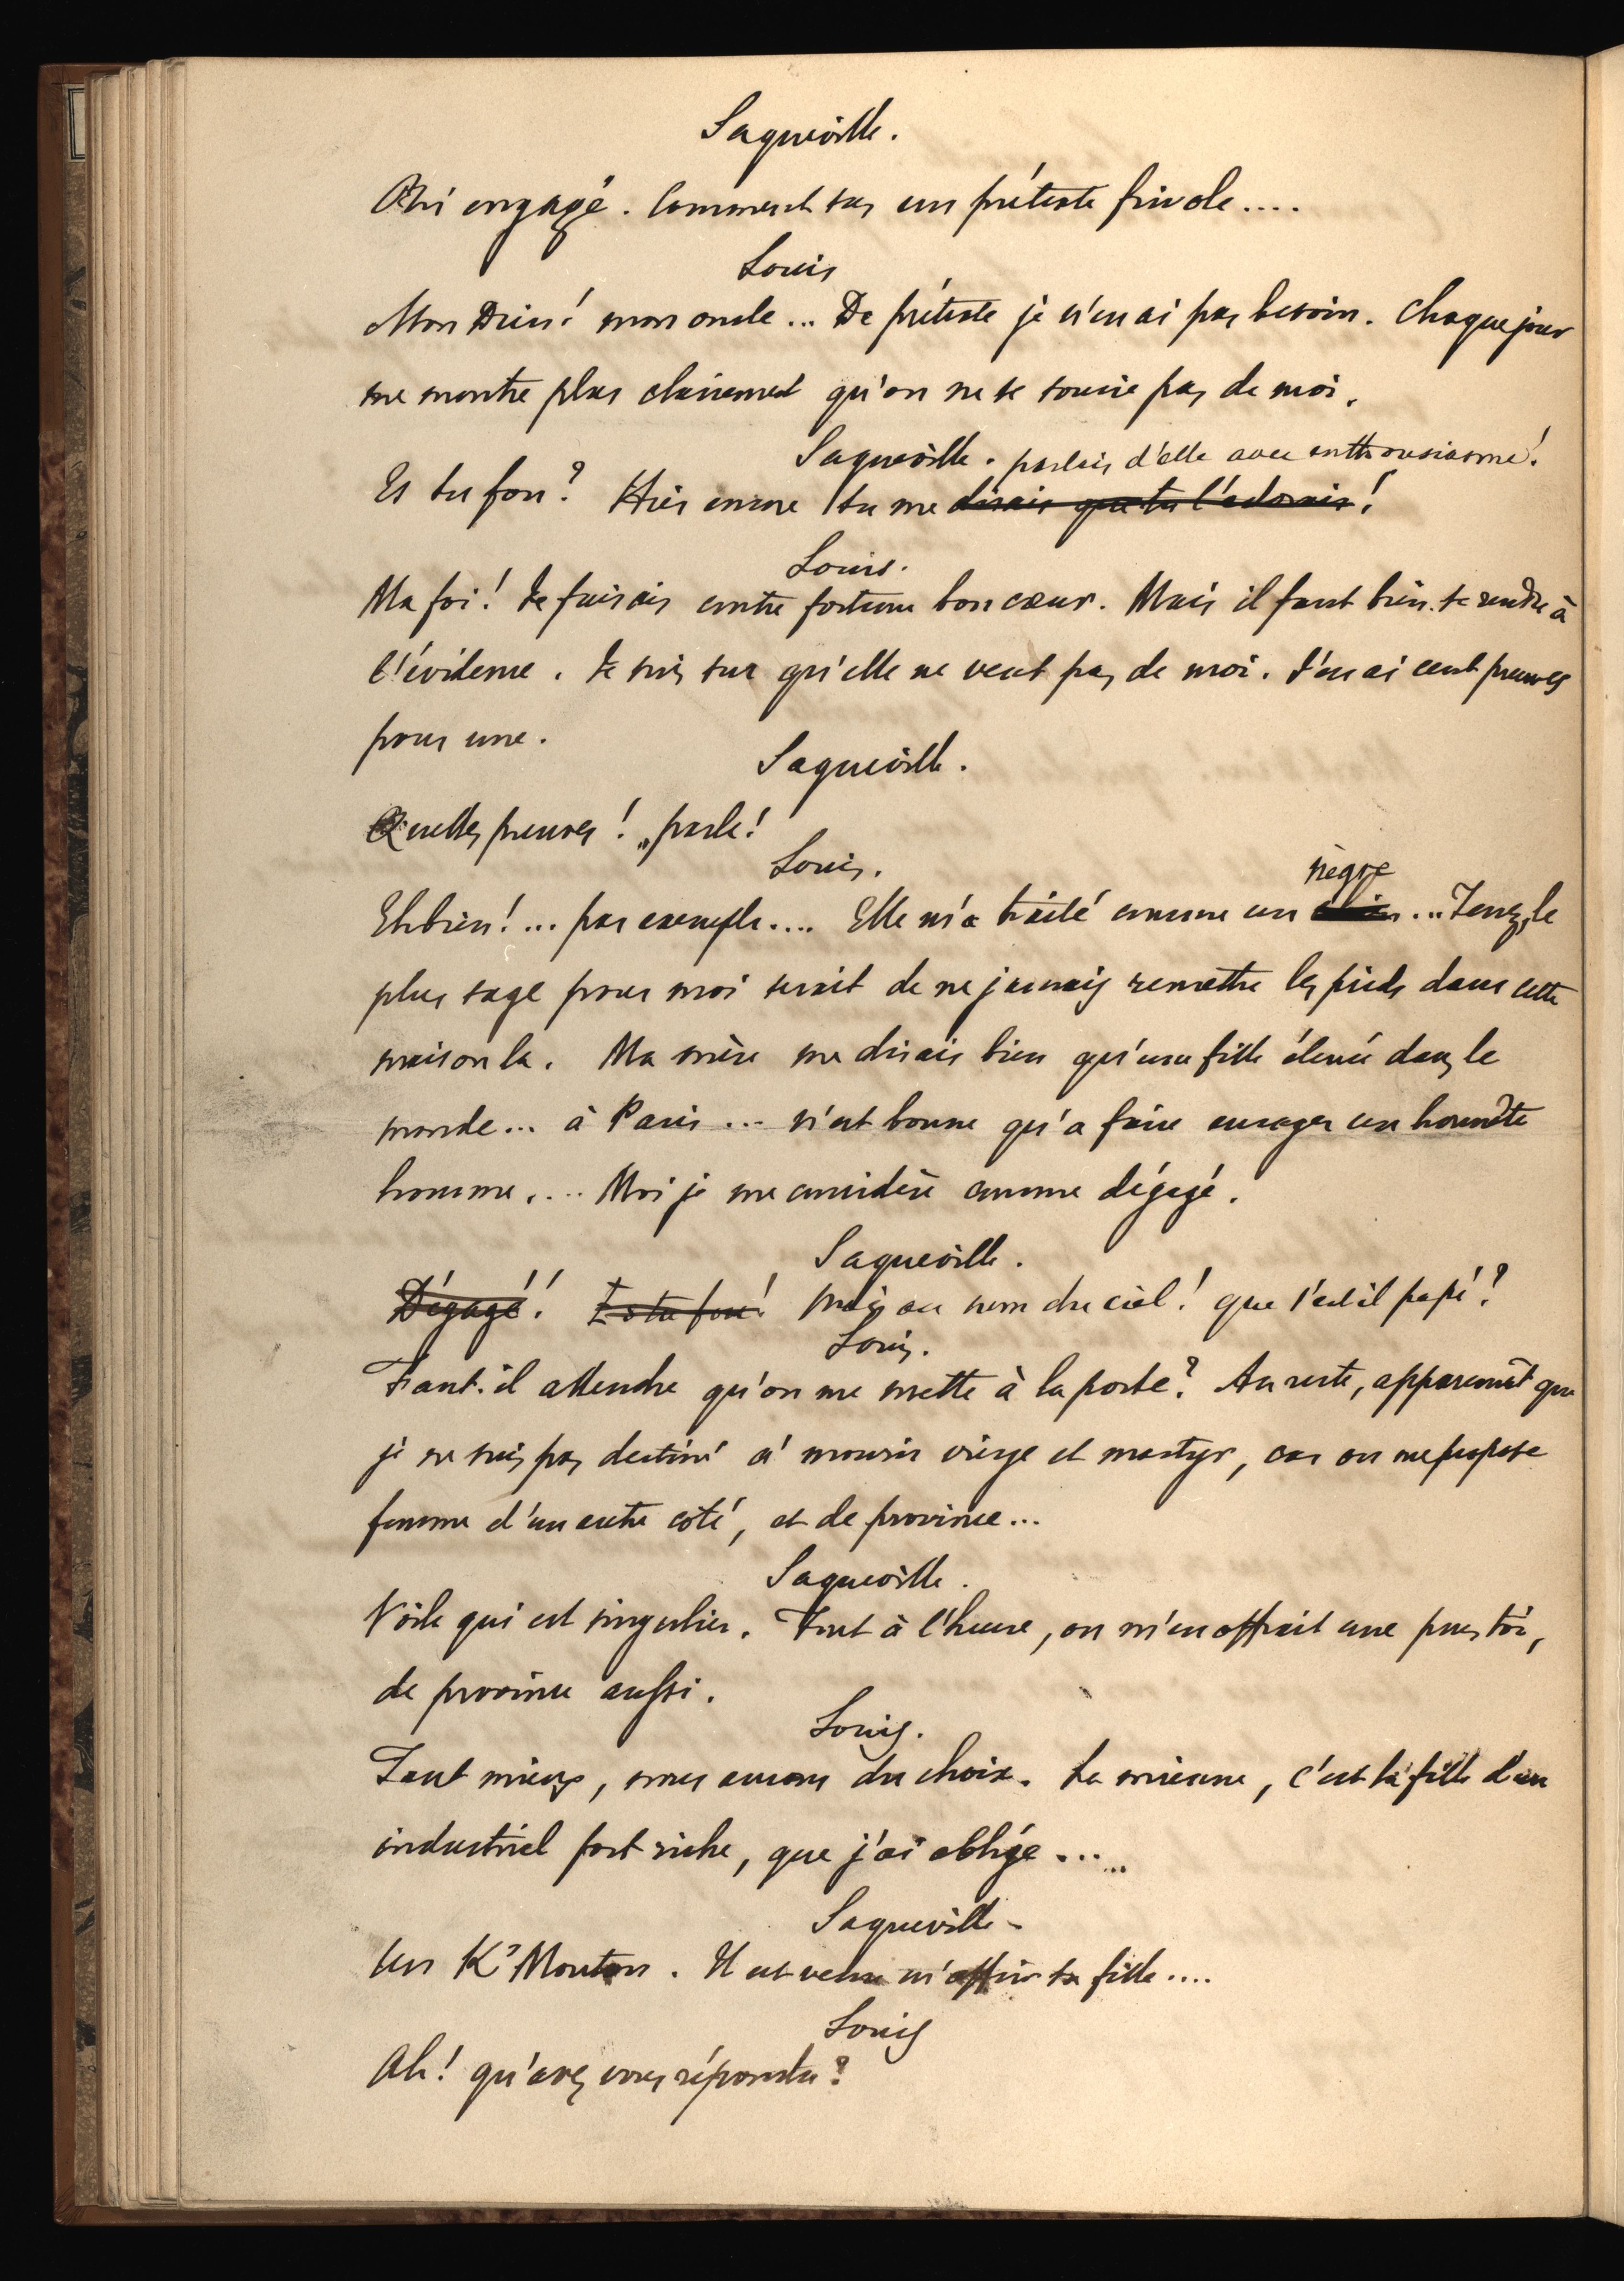 Saqueville.
engagé. Comment sur un prétexte frivole....
Louis
Mon Dieu! mon oncle... De prétexte je n'en ai pas besoin. Chaque jour
me montre plus clairement qu'on ne se soucie pas de moi.
Saqueville.
parlais d'elle avec enthousiasme!
Es tu fou? Hier encore tu me disais que tu l'adorais!
Louis.
Ma foi! Je faisais contre fortune bon cœur. Mais il faut bien se rendre à
l'évidence. Je suis sur qu'elle ne veut pas de moi. J'en ai cent preuves
pour une.
Saqueville.
Quelles preuves! parle!
Louis.
nègre
Eh bien!... par exemple.... Elle m'a traité comme un chien... Tenez, le
plus sage pour moi serait de ne jamais remettre les pieds dans cette
maison la. Ma mère me disais bien qu'une fille élevée dans le
monde... à Paris... n'est bonne qu'a faire enrager un honnête
homme.... Moi je me considère comme dégagé.
Saqueville.
Dégagé! Es tu fou! Mais au nom du ciel! que s'est il passé?
Louis.
Faut-il attendre qu'on me mette à la porte? Au reste, apparemmt que
je ne suis pas destiné à mourir vierge et martyr, car on me propose
femme d'un autre coté, et de province...
Saqueville.
Voila qui est singulier. Tout à l'heure, on m'en offrait une pour toi,
de province aussi.
Louis.
Tant mieux, nous aurons du choix. La mienne, c'est la fille d'un
industriel fort riche, que j'ai obligé.....
Saqueville-
Un Mr Mouton. Il est venu m'offrir sa fille....
Louis
Ah! qu'avez vous répondu?